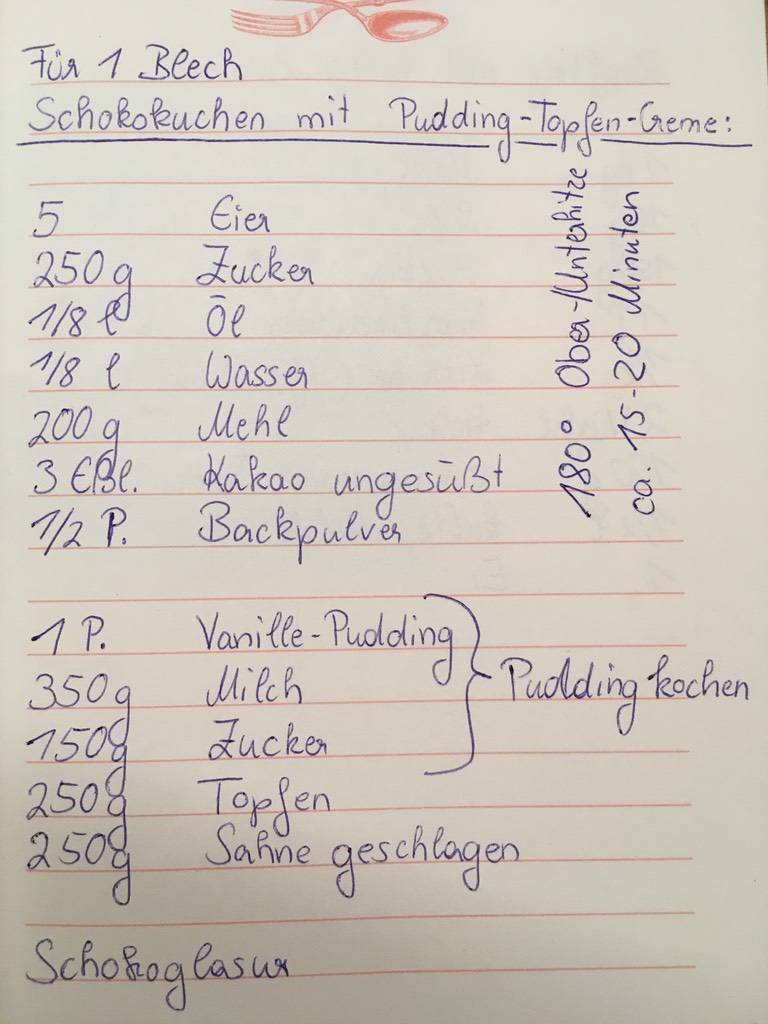 Für 1 Blech
Schokokuchen mit Pudding-Topfen-Creme:
5 Eier
250 g Zucker
1/8 l Öl
1/8 l Wasser
200 g Mehl
3 Eßl. Kakao ungesüßt
1/2 P. Backpulver
180° Ober-/Unterhitze
ca. 15-20 Minuten
1 P. Vanille-Pudding
350g Milch
150g Zucker
Pudding kochen
250g Topfen
250g Sahne geschlagen
Schokoglasur